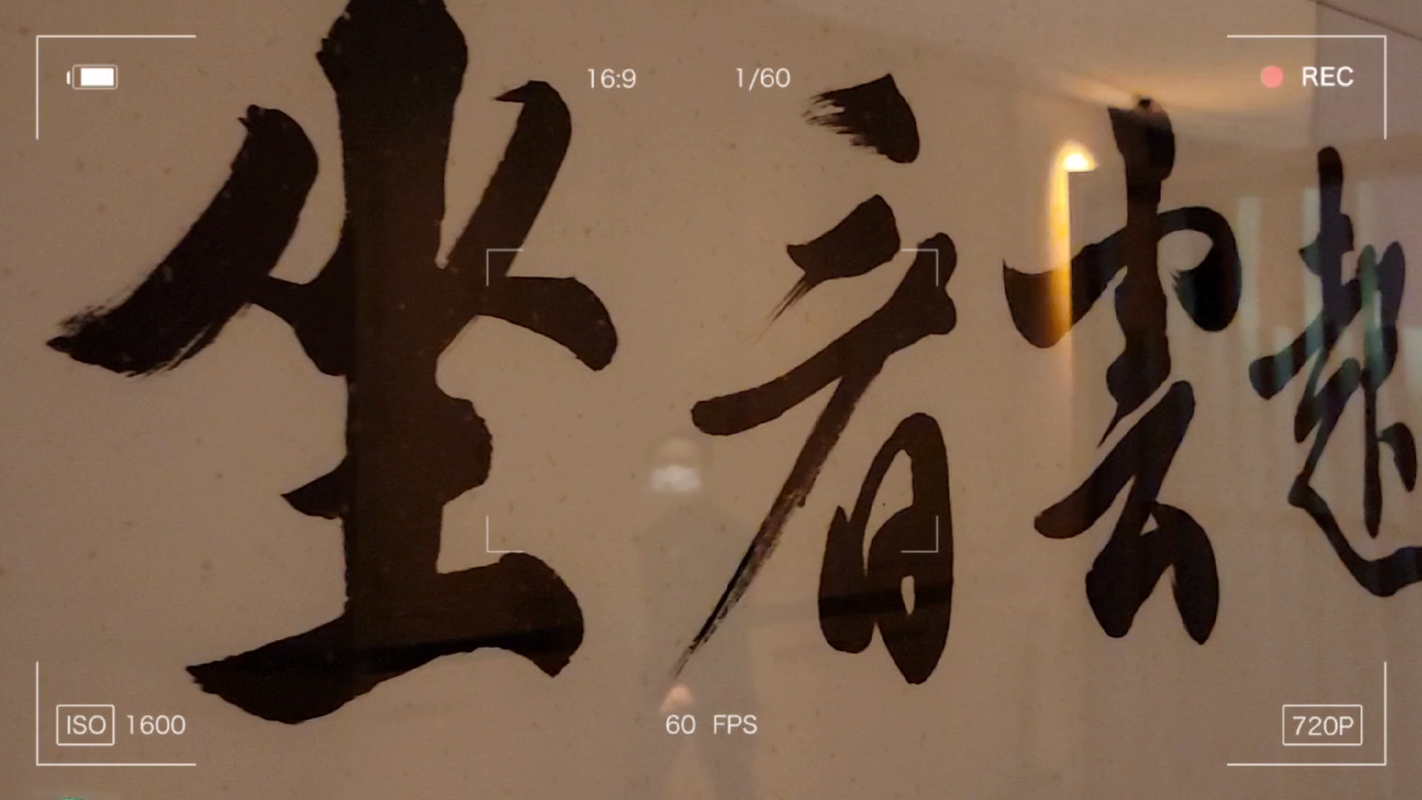 16:9 1/60 REC
坐看雲起
ISO 1600 60 FPS 720P